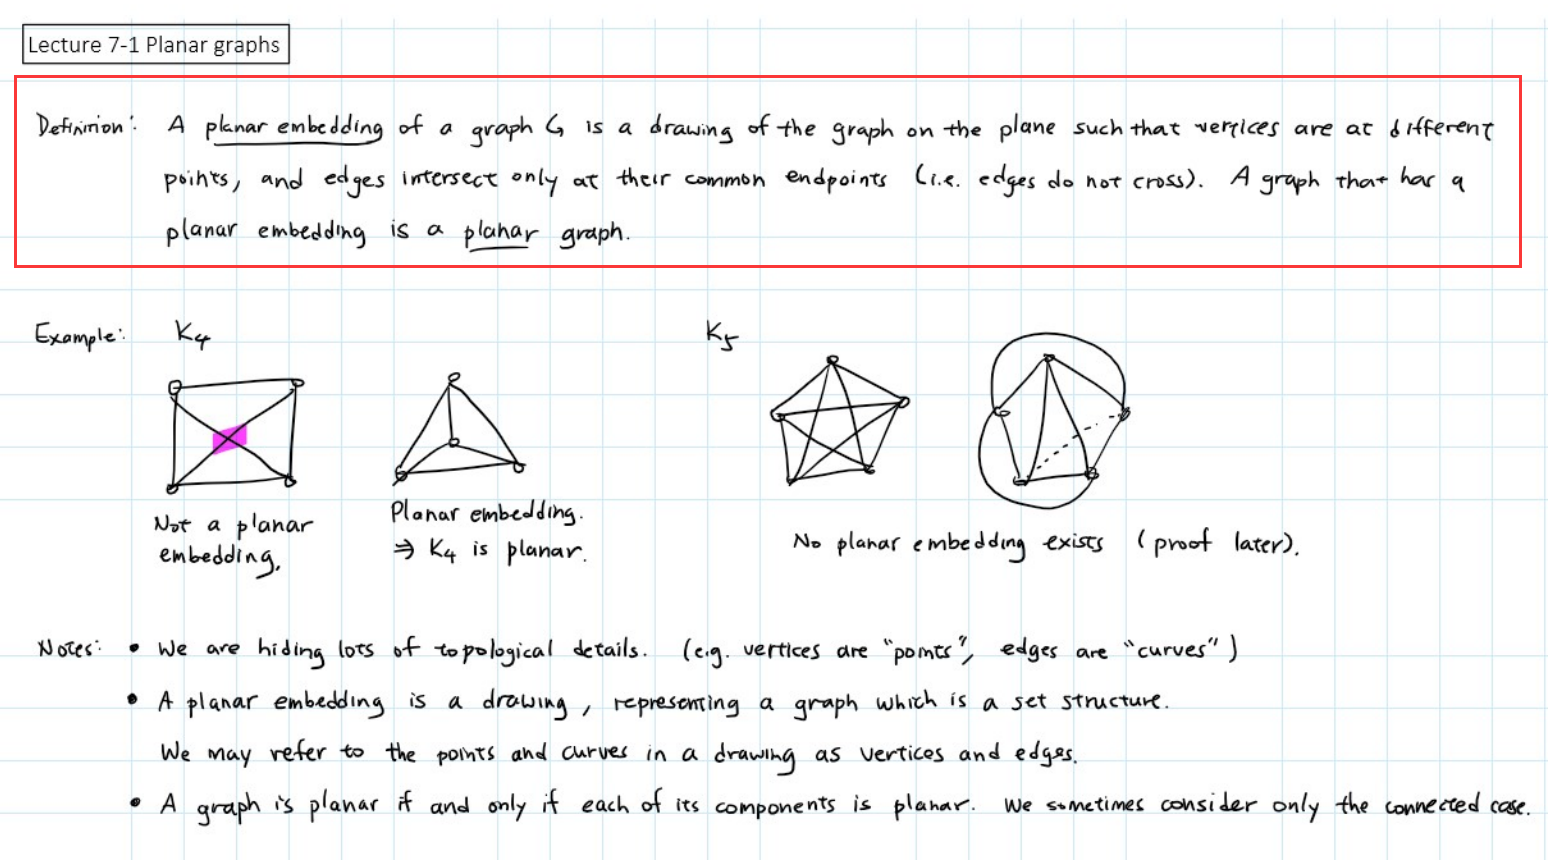 Lecture 7-1 Planar graphs
Definition: A planar embedding of a graph G is a drawing of the graph on the plane such that vertices are at different
points, and edges intersect only at their common endpoints (i.e. edges do not cross). A graph that has a
planar embedding is a planar graph.
Example: K4 K5
Not a planar
embedding.
Planar embedding.
⇒ K4 is planar.
No planar embedding exists (proof later).
Notes: • We are hiding lots of topological details. (e.g. vertices are "points", edges are "curves")
• A planar embedding is a drawing, representing a graph which is a set structure.
We may refer to the points and curves in a drawing as vertices and edges.
• A graph is planar if and only if each of its components is planar. We sometimes consider only the connected case.